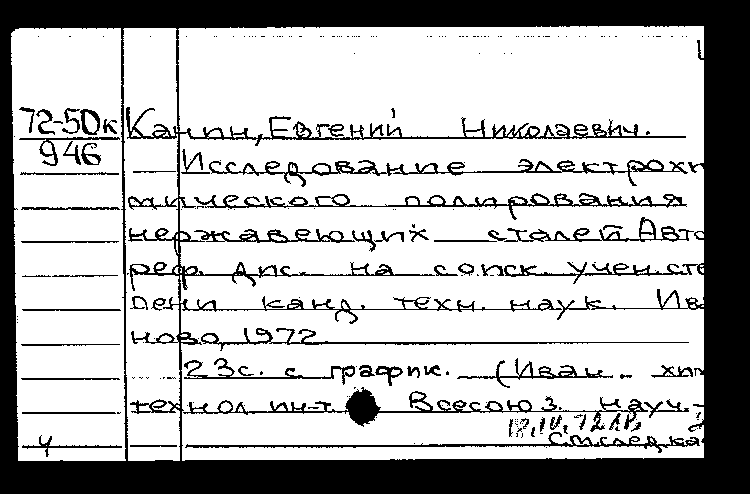 72-50к
946
Канин, Евгений Николаевич.
Исследование электрохи
мического полирования
нержавеющих сталей. Авто
реф. дис. на соиск. учен. сте
пени канд. техн. наук. Ива
ново, 1972.
23 с. с график. (Иван. хим
технол. ин-т. Всесоюз. науч.-
18.IV.72 ЛВ.
См. след. ка
4